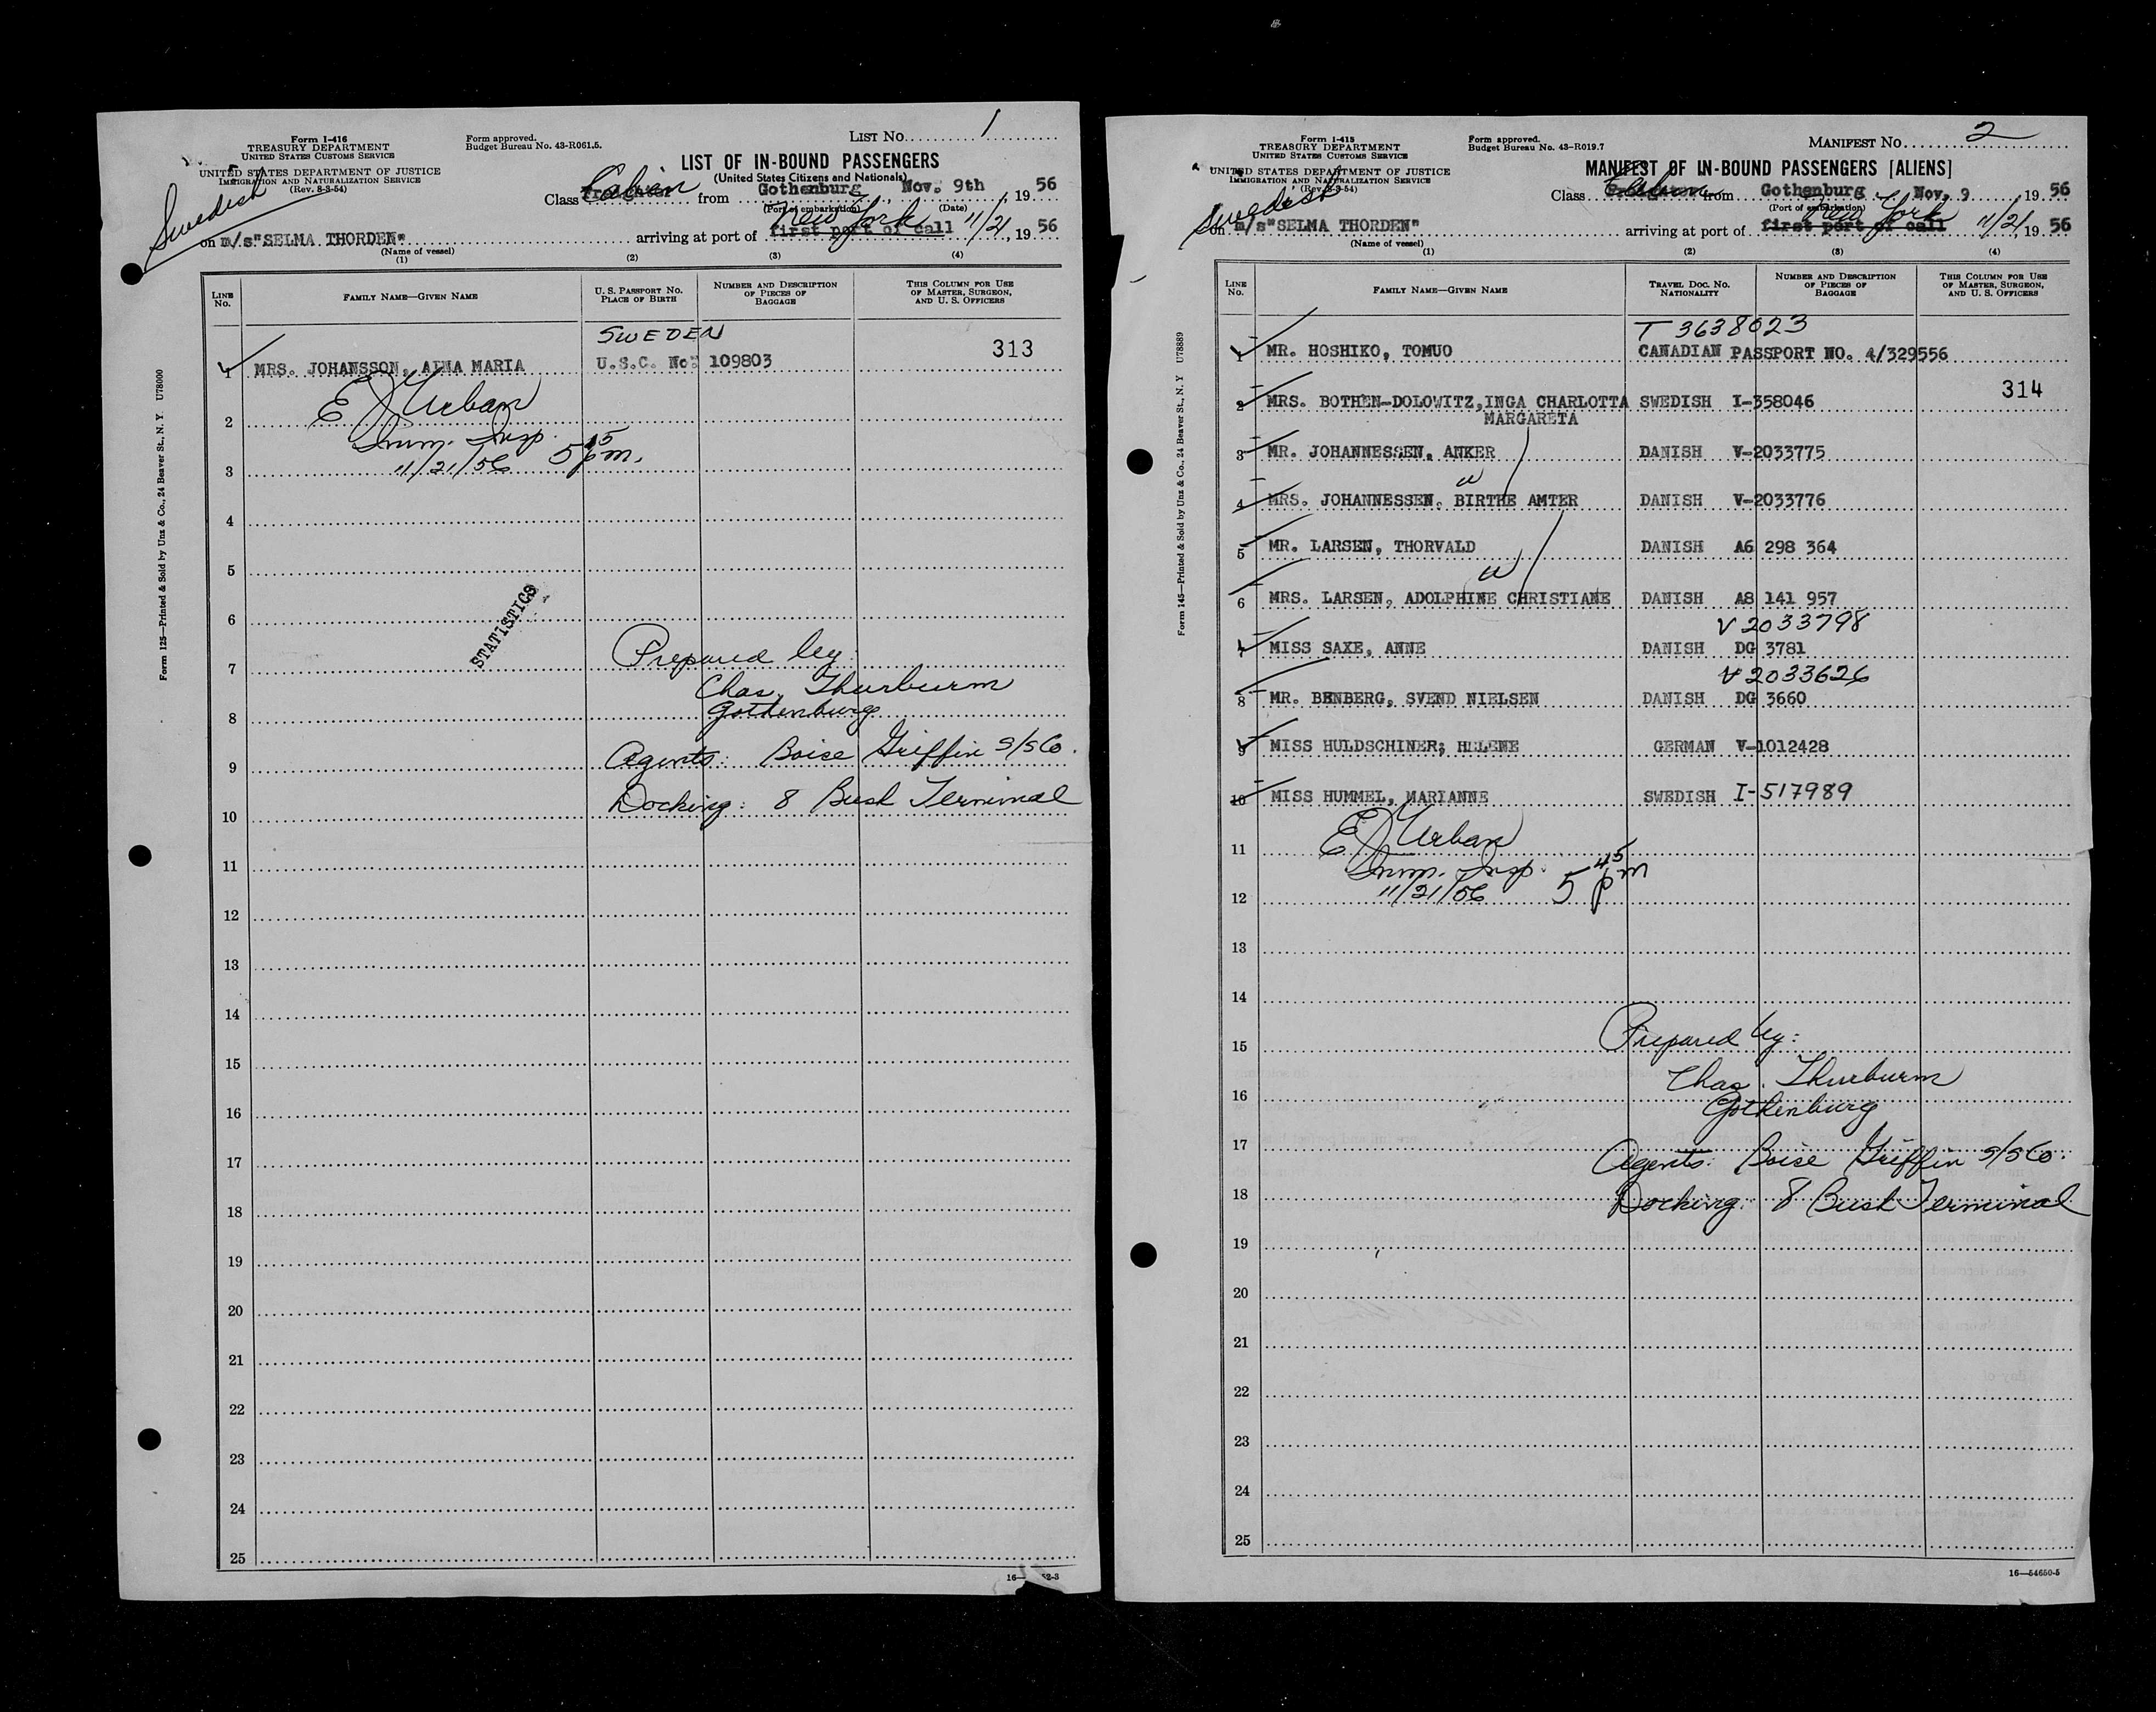 Form I-416
TREASURY DEPARTMENT
UNITED STATES CUSTOMS SERVICE
UNITED STATES DEPARTMENT OF JUSTICE
IMMIGRATION AND NATURALIZATION SERVICE
(Rev. 8-3-54)
Swedish
Form approved.
Budget Bureau No. 43-R061.5.
LIST NO. 1
LIST OF IN-BOUND PASSENGERS
(United States Citizens and Nationals)
Class Cabin from Gothenburg, Nov. 9th, 19 56
(Port of embarkation) (Date)
on m/s"SELMA THORDEN" arriving at port of first port of call New York 11/21, 19 56
(Name of vessel)
(1) (2) (3) (4)
LINE NO. FAMILY NAME—GIVEN NAME U. S. PASSPORT NO. PLACE OF BIRTH NUMBER AND DESCRIPTION OF PIECES OF BAGGAGE THIS COLUMN FOR USE OF MASTER, SURGEON, AND U. S. OFFICERS
SWEDEN
1 MRS. JOHANSSON, ALMA MARIA U.S.C. No: 109803 313
E J Urban
2
Imm. Insp.
3 11/21/56 5 45 pm.
4
5
STATISTICS
6
Prepared by:
7
Chas. Thurburn
8 Gothenburg
9 Agents: Boise Griffin S/S Co.
10 Docking: 8 Bush Terminal
11
12
13
14
15
16
17
18
19
20
21
22
23
24
25
Form 125—Printed & Sold by Unz & Co., 24 Beaver St., N. Y U78000
16— 52-3
Form I-415
TREASURY DEPARTMENT
UNITED STATES CUSTOMS SERVICE
UNITED STATES DEPARTMENT OF JUSTICE
IMMIGRATION AND NATURALIZATION SERVICE
(Rev. 8-3-54)
Swedish
Form approved.
Budget Bureau No. 43-R019.7
MANIFEST NO. 2
MANIFEST OF IN-BOUND PASSENGERS [ALIENS]
Class Cabin from Gothenburg, Nov. 9, 19 56
(Port of embarkation)
on m/s"SELMA THORDEN" arriving at port of first port of call New York 11/21, 19 56
(Name of vessel)
(1) (2) (3) (4)
LINE NO. FAMILY NAME—GIVEN NAME TRAVEL DOC. NO. NATIONALITY NUMBER AND DESCRIPTION OF PIECES OF BAGGAGE THIS COLUMN FOR USE OF MASTER, SURGEON, AND U. S. OFFICERS
T 3638023
1 MR. HOSHIKO, TOMUO CANADIAN PASSPORT NO. 4/329556
314
2 MRS. BOTHEN-DOLOWITZ, INGA CHARLOTTA SWEDISH I-358046
MARGARETA
3 MR. JOHANNESSEN, ANKER DANISH V-2033775
w
4 MRS. JOHANNESSEN, BIRTHE AMTER DANISH V-2033776
5 MR. LARSEN, THORVALD DANISH A6 298 364
w
6 MRS. LARSEN, ADOLPHINE CHRISTIANE DANISH A8 141 957
V 2033798
7 MISS SAXE, ANNE DANISH DG 3781
V 2033626
8 MR. BENBERG, SVEND NIELSEN DANISH DG 3660
9 MISS HULDSCHINER; HELENE GERMAN V-1012428
10 MISS HUMMEL, MARIANNE SWEDISH I-517989
E J Urban
11
Imm. Insp. 5 45 pm
12 11/21/56
13
14
15 Prepared by:
16 Chas. Thurburn
Gothenburg
17 Agents: Boise Griffin S/S Co.
18 Docking: 8 Bush Terminal
19
20
21
22
23
24
25
Form 145—Printed & Sold by Unz & Co., 24 Beaver St., N. Y U78889
16—54650-5